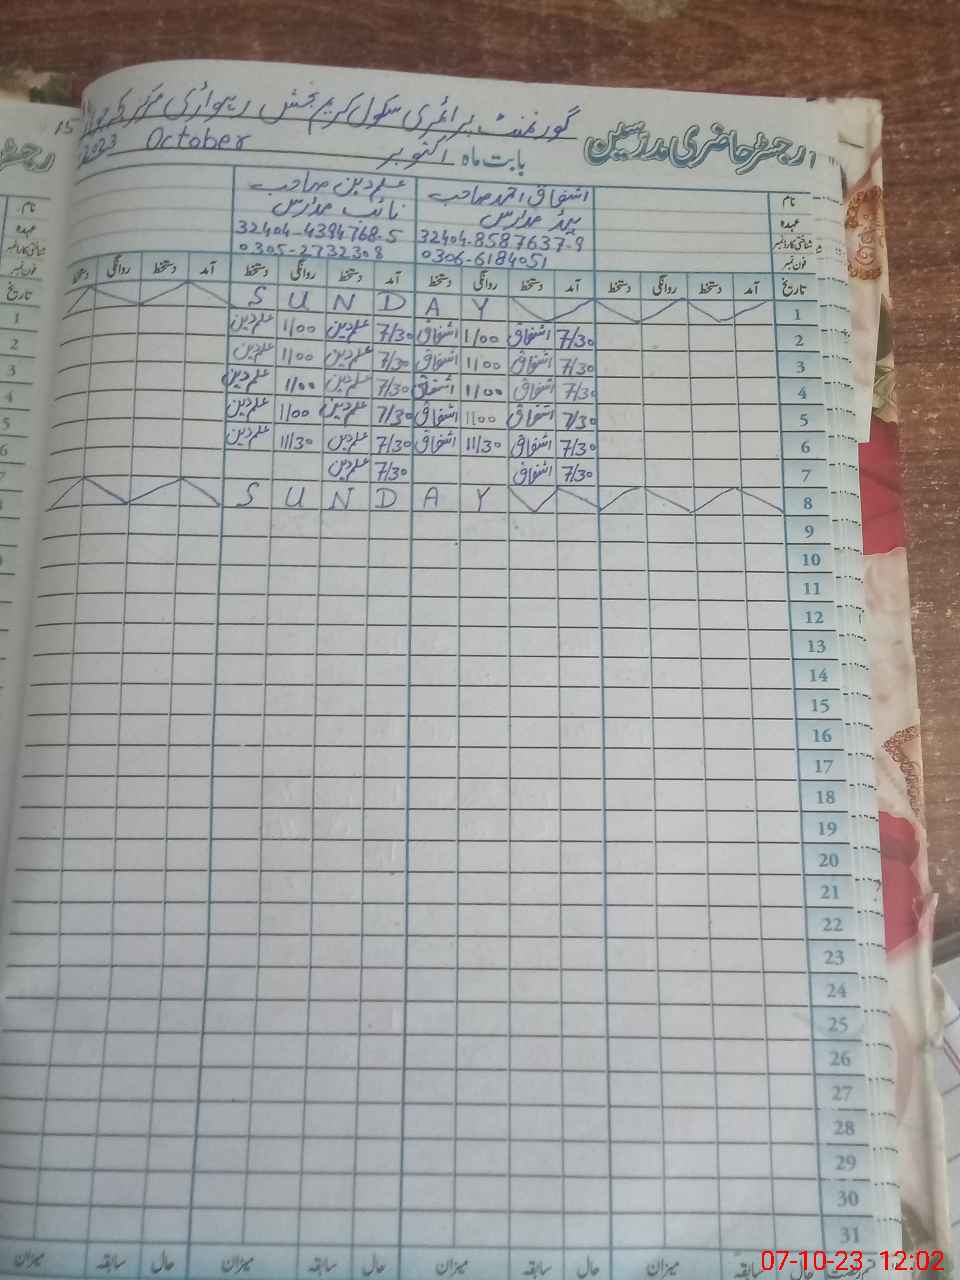 رجسٹر حاضری مدرسین
گورنمنٹ پرائمری سکول کریم بخش
بابت ماہ اکتوبر October 2023
نام اشفاق احمد صاحب علم دین صاحب
عہدہ ہیڈ مدرس نائب مدرس
شناختی کارڈ نمبر 32404-8587637-9 32404-4394768-5
فون نمبر 0306-6184051 0305-2732308
تاریخ آمد دستخط روانگی دستخط آمد دستخط روانگی دستخط آمد دستخط روانگی دستخط آمد دستخط روانگی دستخط
1 S U N D A Y
2 7/30 اشفاق 1/00 اشفاق 7/30 علم دین 1/00 علم دین
3 7/30 اشفاق 1/00 اشفاق 7/30 علم دین 1/00 علم دین
4 7/30 اشفاق 1/00 اشفاق 7/30 علم دین 1/00 علم دین
5 7/30 اشفاق 1/00 اشفاق 7/30 علم دین 1/00 علم دین
6 7/30 اشفاق 11/30 اشفاق 7/30 علم دین 11/30 علم دین
7 7/30 اشفاق 7/30 علم دین
8 S U N D A Y
9
10
11
12
13
14
15
16
17
18
19
20
21
22
23
24
25
26
27
28
29
30
31
حال سابقہ میزان حال سابقہ میزان حال سابقہ میزان حال سابقہ میزان
07-10-23 12:02